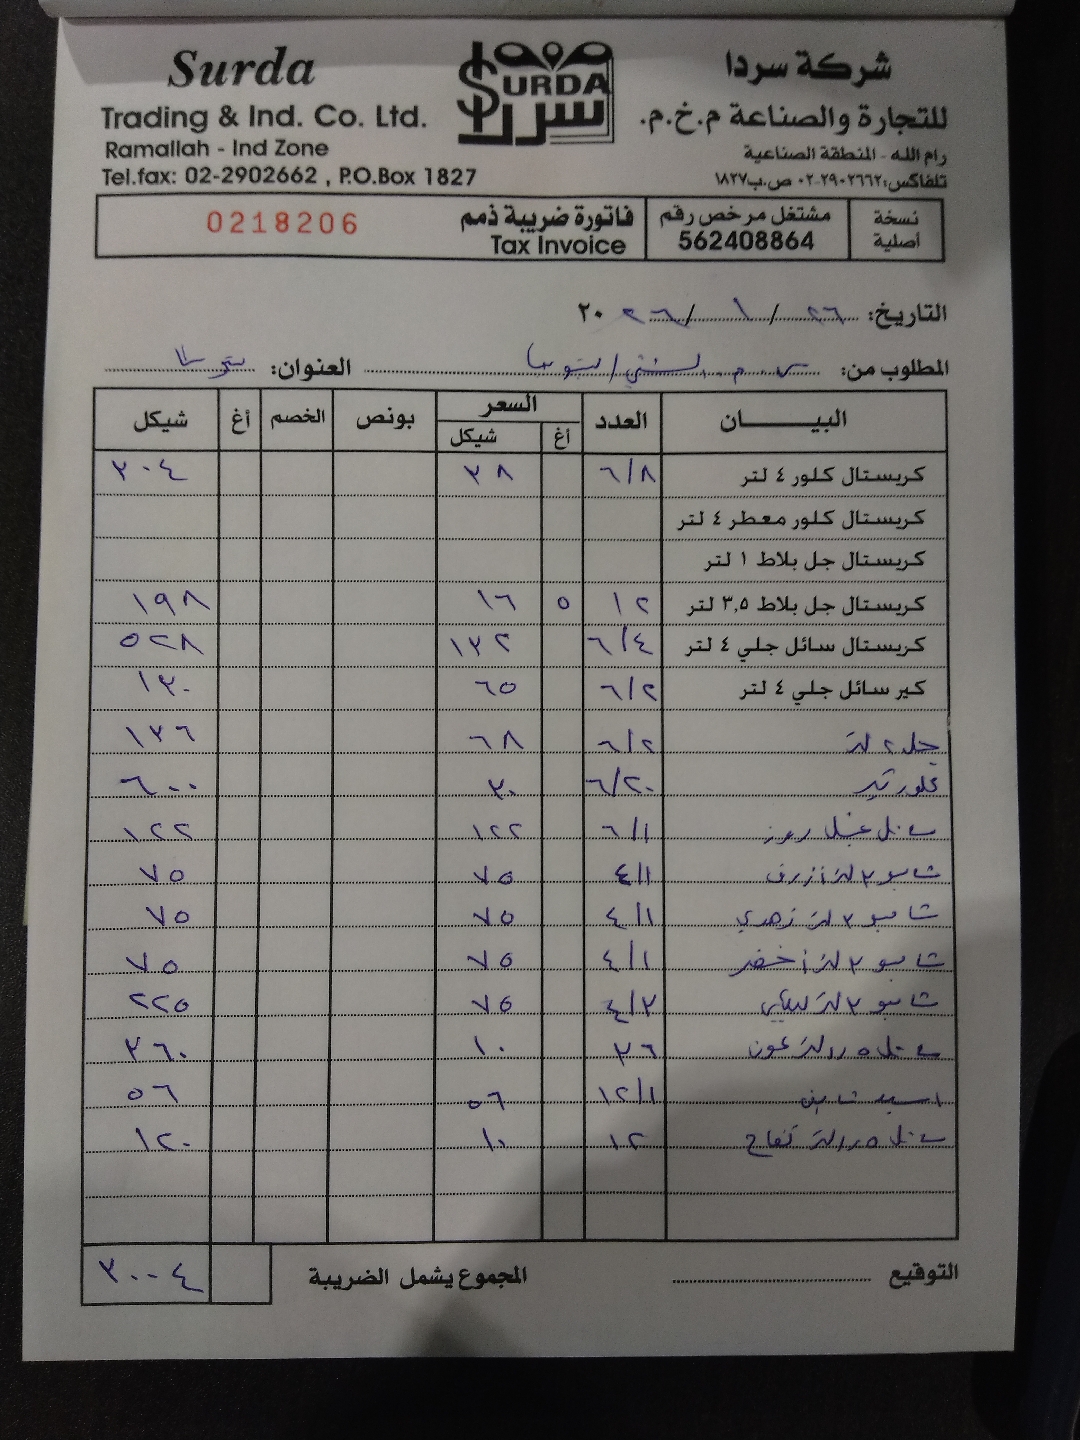 Surda
Trading & Ind. Co. Ltd.
Ramallah - Ind Zone
Tel.fax: 02-2902662 , P.O.Box 1827
SURDA
سردا
شركة سردا
للتجارة والصناعة م.خ.م.
رام الله - المنطقة الصناعية
تلفاكس: ٢٩٠٢٦٦٢-٠٢ ص.ب ١٨٢٧
نسخة أصلية
مشتغل مرخص رقم
562408864
فاتورة ضريبة ذمم
Tax Invoice
0218206
التاريخ: ٢٦ / ١ / ٢٠٢٦
المطلوب من: العنوان:
البيــــان العدد السعر بونص الخصم أغ شيكل
أغ شيكل
كريستال كلور ٤ لتر ٦/٨ ٣٨ ٣٠٤
كريستال كلور معطر ٤ لتر
كريستال جل بلاط ١ لتر
كريستال جل بلاط ٣,٥ لتر ١٢ ٥ ١٦ ١٩٨
كريستال سائل جلي ٤ لتر ٦/٤ ١٣٢ ٥٢٨
كير سائل جلي ٤ لتر ٦/٢ ٦٥ ١٣٠
جل ٢ لتر ٦/٢ ٦٨ ١٣٦
كلور كير ٦/٢٠ ٣٠ ٦٠٠
سائل غسيل روز ٦/١ ١٢٢ ١٢٢
شامبو ٣ لتر أزرق ٤/١ ٧٥ ٧٥
شامبو ٣ لتر زهري ٤/١ ٧٥ ٧٥
شامبو ٣ لتر أخضر ٤/١ ٧٥ ٧٥
شامبو ٣ لتر ٤/٣ ٧٥ ٢٢٥
سائل لتر ٣٦ ١٠ ٣٦٠
اسيد ١٢/١ ٥٦ ٥٦
سائل لتر تفاح ١٢ ١٠ ١٢٠
التوقيع المجموع يشمل الضريبة ٣٠٠٤